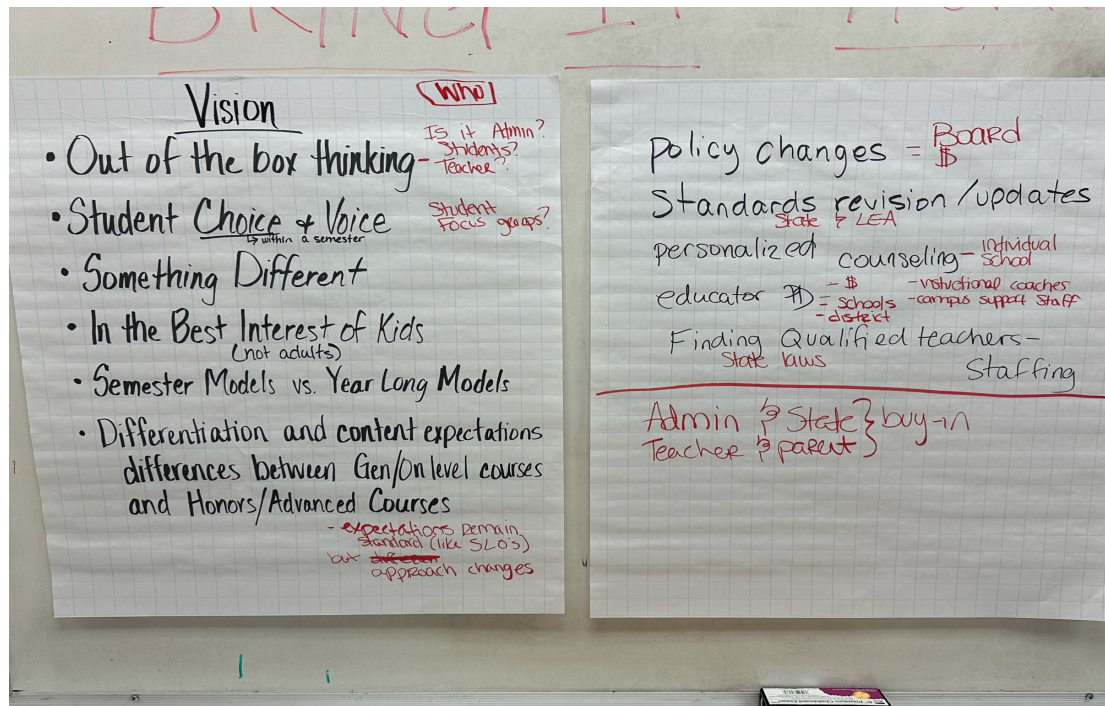 BRING IT HOME
Vision
WHO
• Out of the box thinking - Is it Admin?
Students?
Teacher?
• Student Choice & Voice
↳ within a semester
Student
Focus groups?
• Something Different
• In the Best Interest of Kids
(not adults)
• Semester Models vs. Year Long Models
• Differentiation and content expectations
differences between Gen/On level courses
and Honors/Advanced Courses
- expectations remain
standard (like SLO's)
but
approach changes
policy changes = Board
$
Standards revision/updates
State & LEA
personalized counseling - individual
school
educator PD - $
- schools
- district
- instructional coaches
- campus support staff
Finding Qualified teachers -
State laws
Staffing
Admin & State } buy-in
Teacher & parent